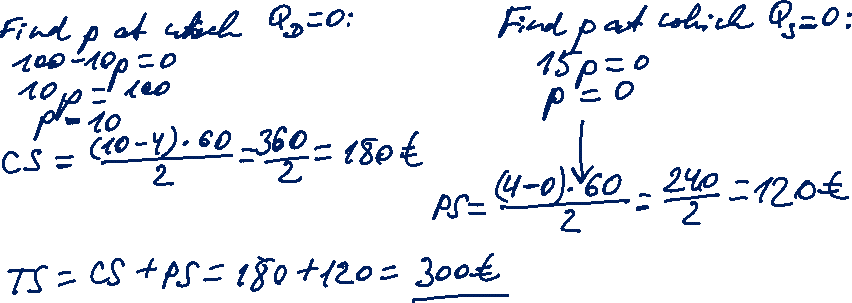 Find p at which Q_D=0:
100-10p=0
10p=100
p=10
CS = (10-4)·60/2 = 360/2 = 180€
Find p at which Q_S=0:
15p=0
p=0
PS = (4-0)·60/2 = 240/2 = 120€
TS = CS + PS = 180+120 = 300€